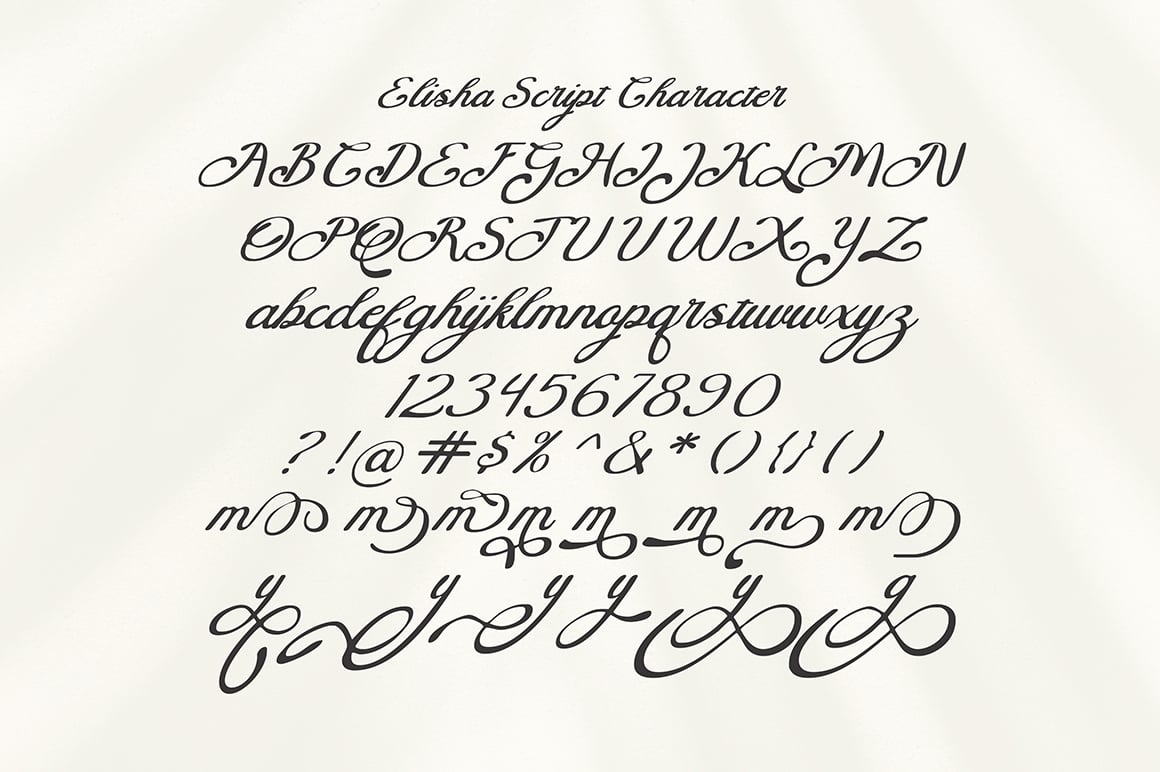 Elisha Script Character
ABCDEFGHIJKLMN
OPQRSTUVWXYZ
abcdefghijklmnopqrstuvwxyz
1234567890
?!@#$%^&*(){}()
mmmmmmmm
yyyyyg